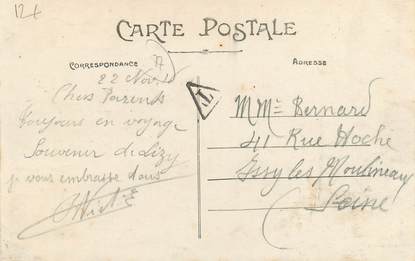 12+
CARTE POSTALE
CORRESPONDANCE
ADRESSE
22 Nov
Chers Parents
toujours en voyage
Souvenir de Lizy
je vous embrasse tous
T
M Mme Bernard
41 Rue Hoche
Issy les Moulineaux
Seine